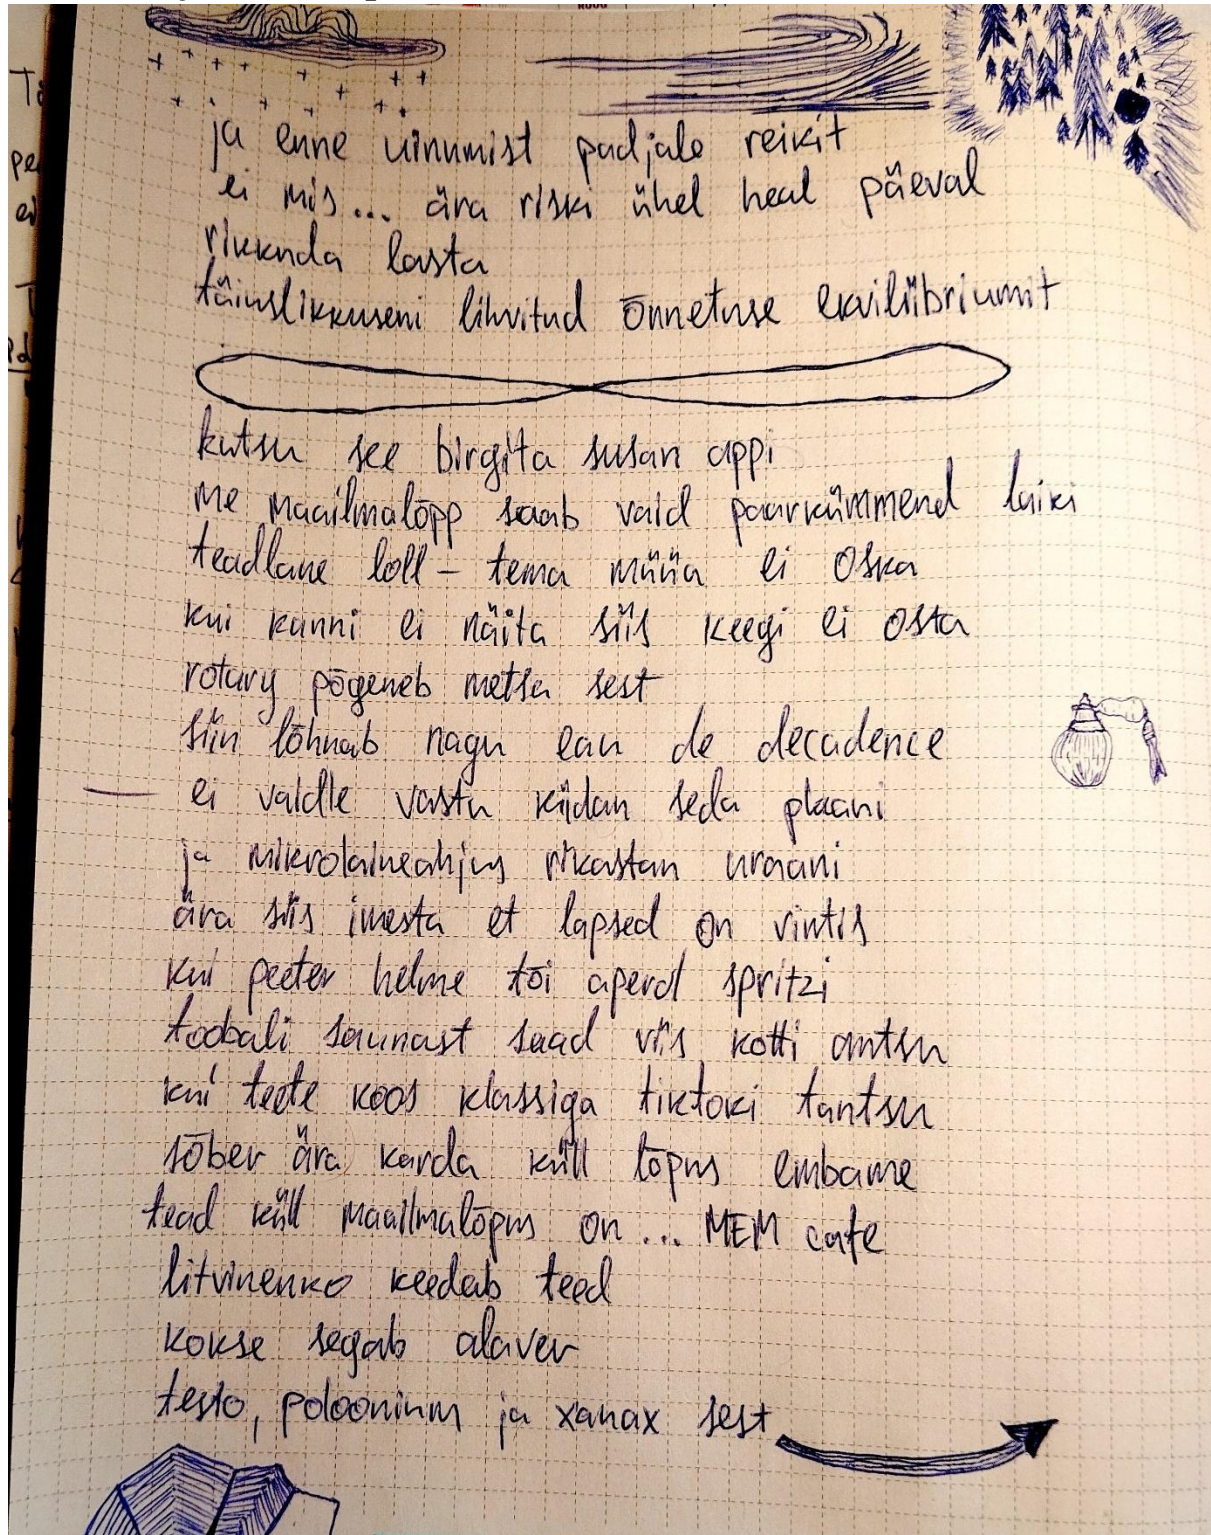 ja enne uinumist padjale reikit
ei mis... ära riski ühel heal päeval
rikkuda lasta
täiuslikkuseni lihvitud õnnetuse ekviliibriumit
kutsu see birgita susan appi
me maailmalõpp saab vaid paarkümmend laiki
teadlane loll – tema müüa ei oska
kui kanni ei näita siis keegi ei osta
rotary põgeneb metsa sest
siin lõhnab nagu eau de decadence
ei vaidle vastu kiidan seda plaani
ja mikrolaineahjus rikastan uraani
ära siis imesta et lapsed on vintis
kui peeter helme tõi aperol spritzi
toobali saunast saad viis kotti antsu
kui teete koos klassiga tiktoki tantsu
sõber ära karda küll lõpus embame
tead küll maailmalõpus on ... MEM cafe
litvinenko keedab teed
kokse segab alaver
testo, poloonium ja xanax sest